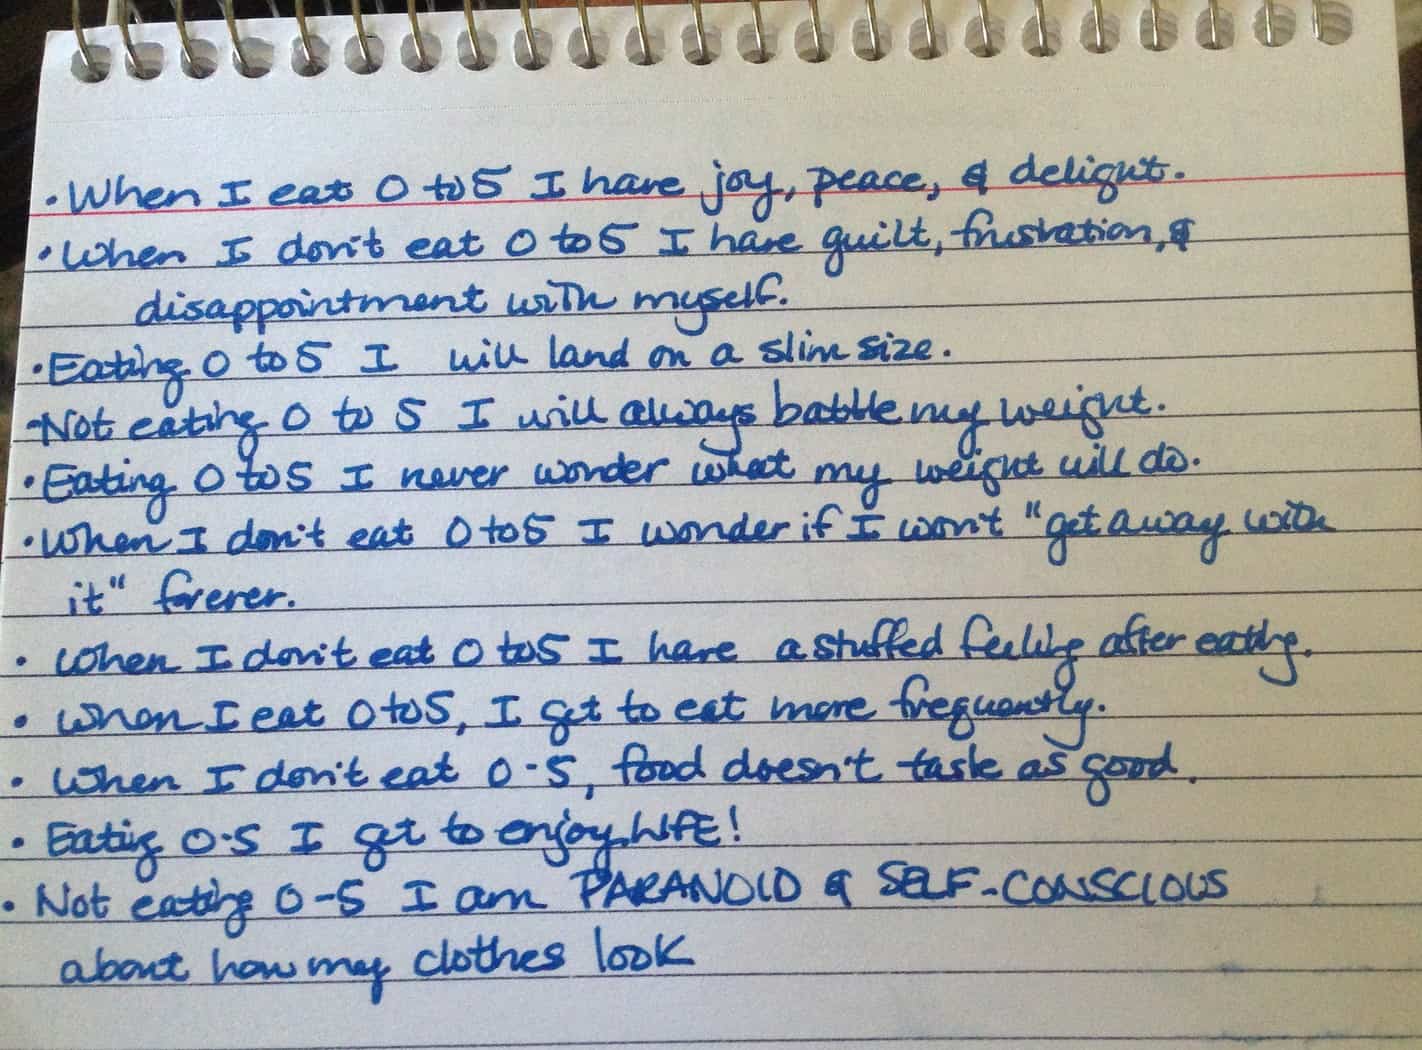 • When I eat 0 to 5 I have joy, peace, & delight.
• When I don't eat 0 to 5 I have guilt, frustration, &
disappointment with myself.
• Eating 0 to 5 I will land on a slim size.
• Not eating 0 to 5 I will always battle my weight.
• Eating 0 to 5 I never wonder what my weight will do.
• When I don't eat 0 to 5 I wonder if I won't "get away with
it" forever.
• When I don't eat 0 to 5 I have a stuffed feeling after eating.
• When I eat 0 to 5, I get to eat more frequently.
• When I don't eat 0-5, food doesn't taste as good.
• Eating 0-5 I get to enjoy LIFE!
• Not eating 0-5 I am PARANOID & SELF-CONSCIOUS
about how my clothes look